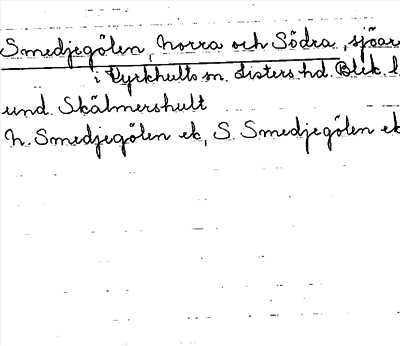 Smedjegölen, Norra och Södra, sjöar
i Kyrkhults sn. Listers hd. Blek. l
und. Skälmershult
N. Smedjegölen ek, S. Smedjegölen ek